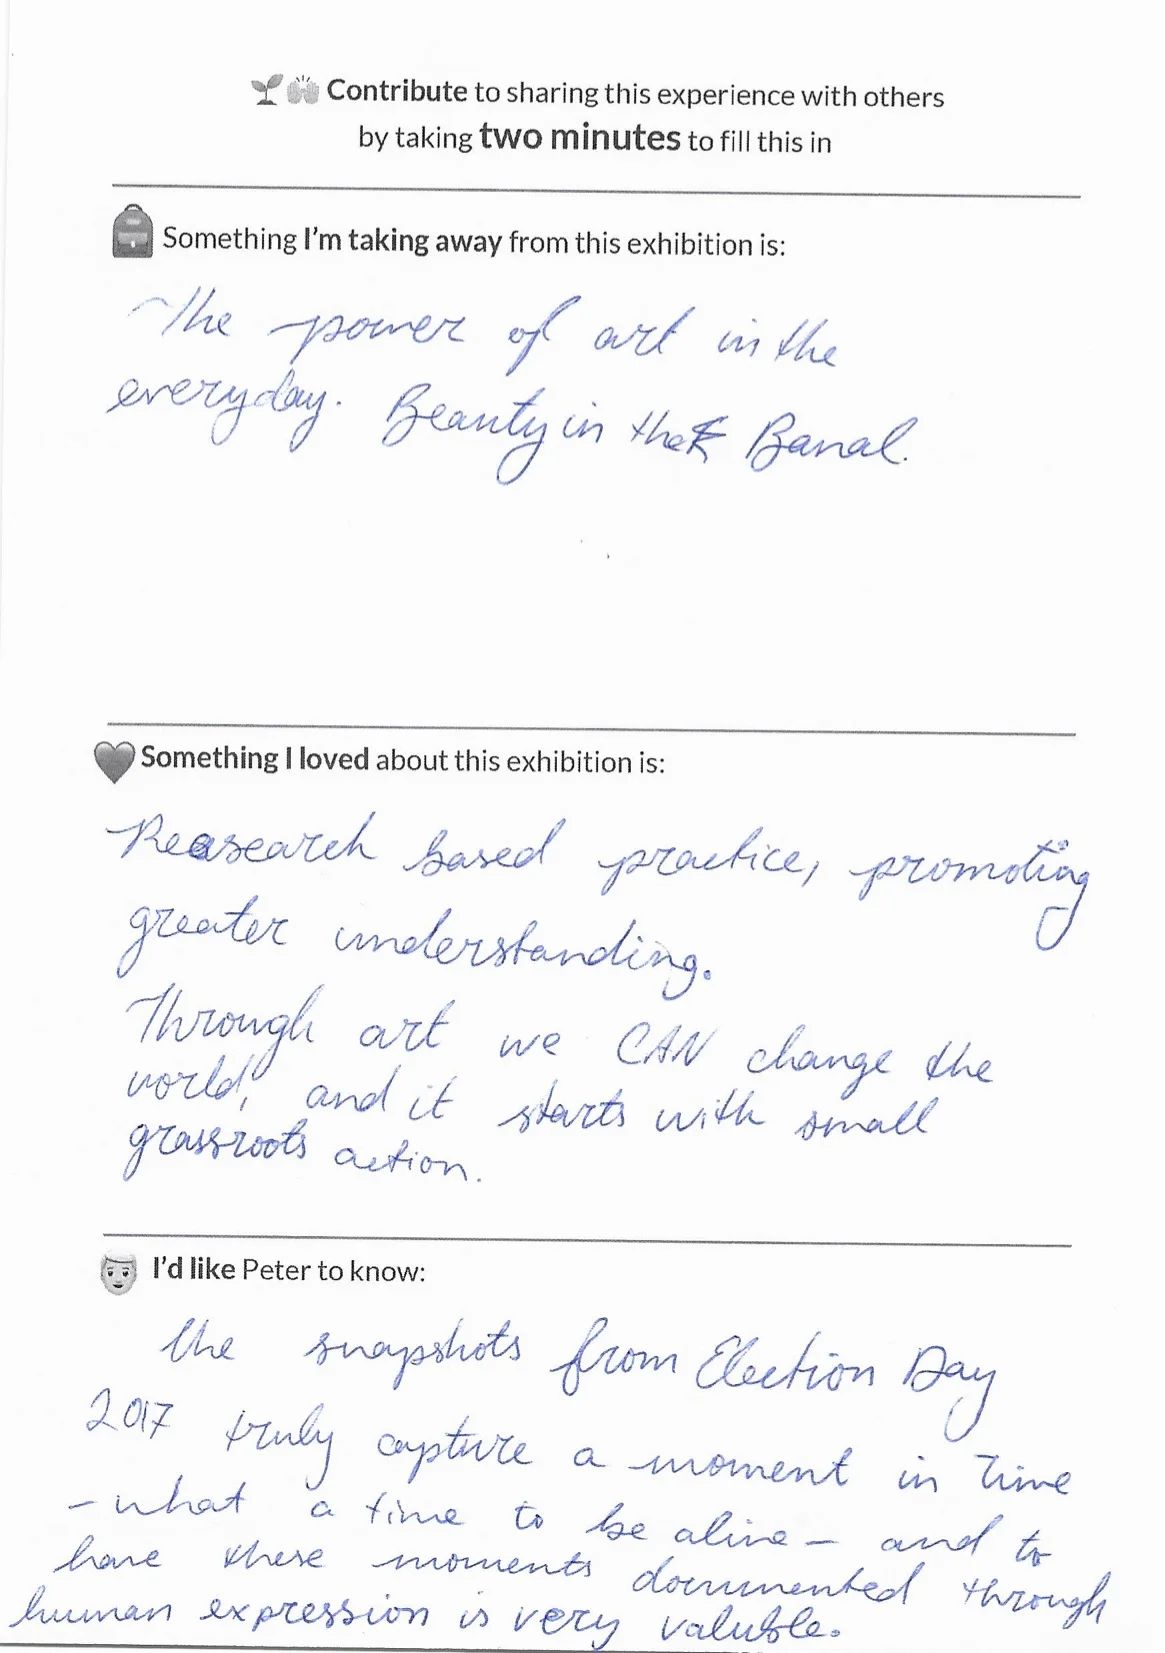 Contribute to sharing this experience with others
by taking two minutes to fill this in
Something I'm taking away from this exhibition is:
The power of art in the
everyday. Beauty in the Banal.
Something I loved about this exhibition is:
Reasearch based practice, promoting
greater understanding.
Through art we CAN change the
world, and it starts with small
grassroots action.
I'd like Peter to know:
the snapshots from Election Day
2017 truly capture a moment in time
– what a time to be alive – and to
have these moments documented through
human expression is very valuble.